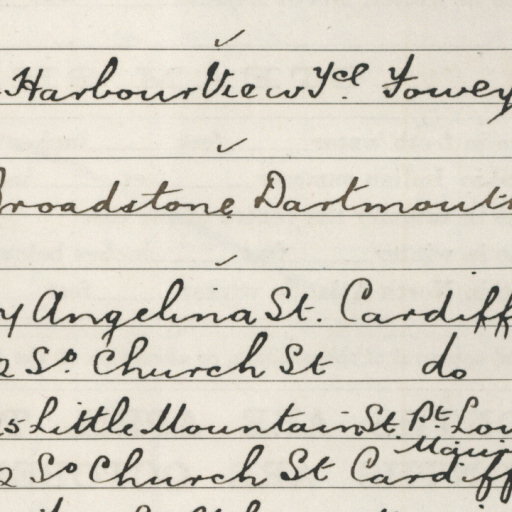 Harbour View Tce. Fowey
Broadstone Dartmouth
Angelina St. Cardiff
2 So. Church St do
5 Little Mountain St. Pt. Lou
2 So Church St Cardiff